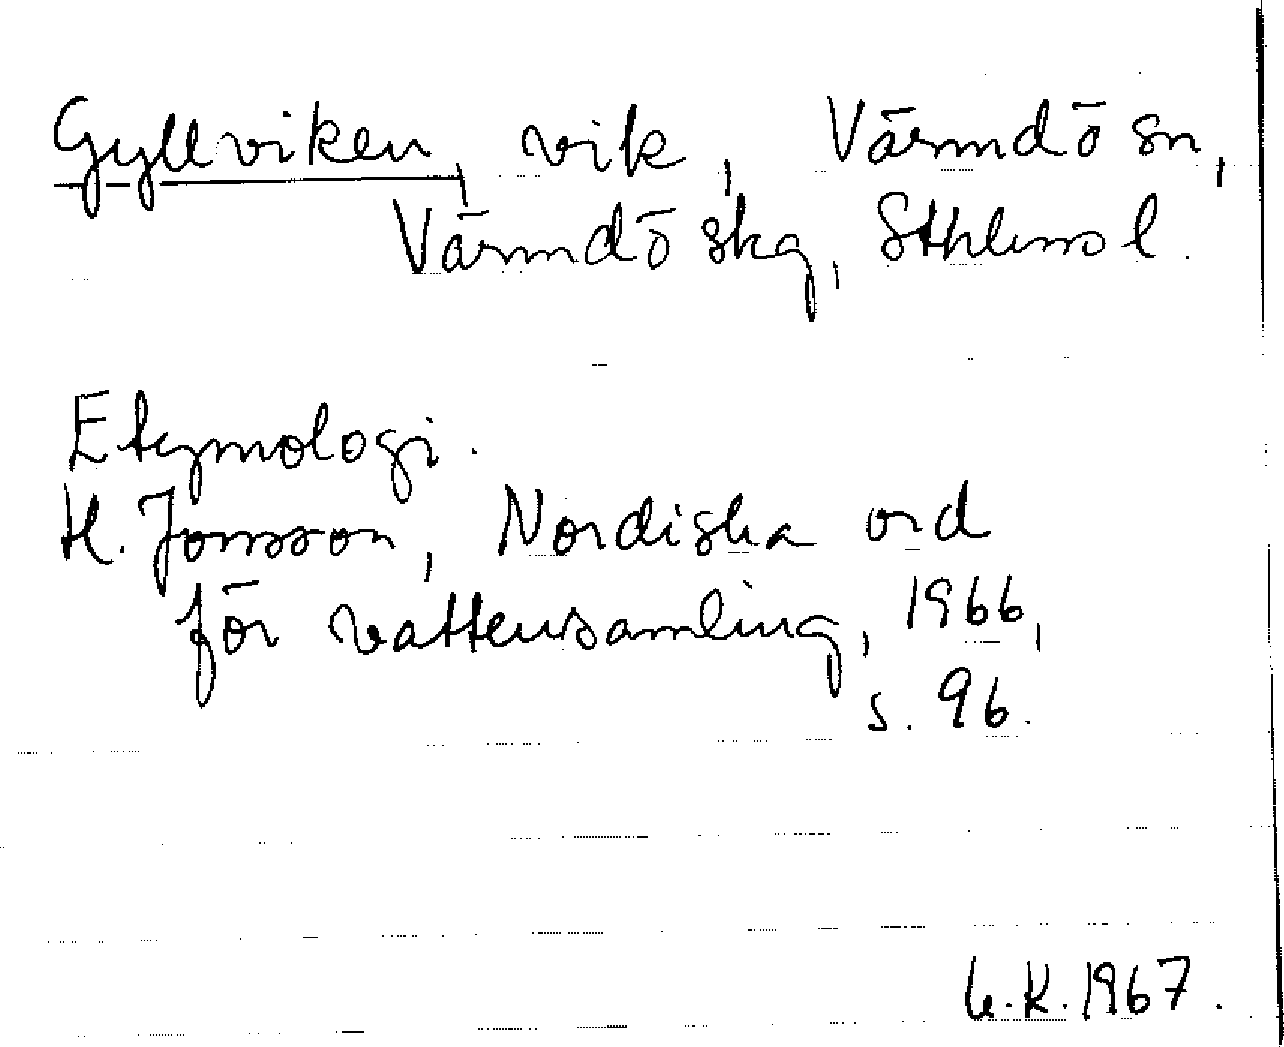 Gyllviken, vik, Värmdö sn,
Värmdö skg, Sthlms l.
Etymologi.
H. Jonsson, Nordiska ord
för vattensamling, 1966,
s. 96.
K. 1967.